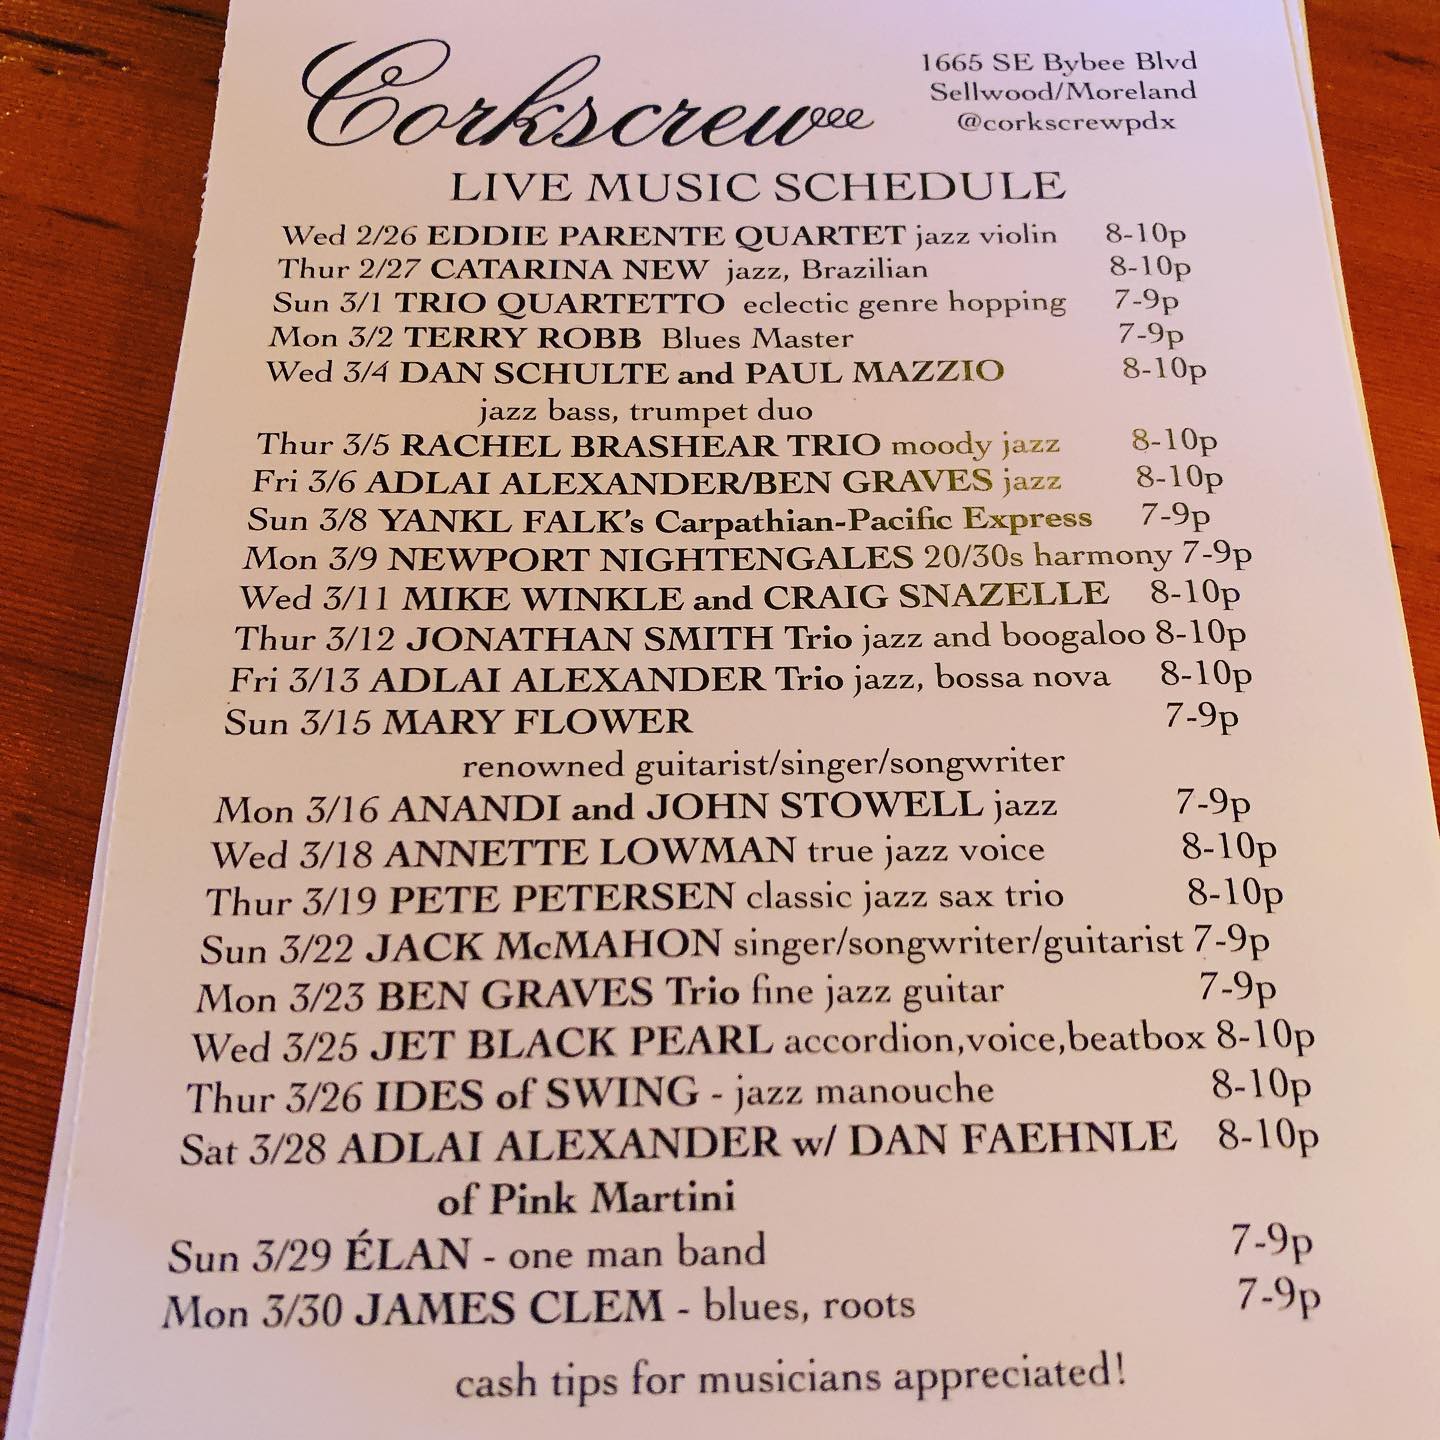 Corkscrew
1665 SE Bybee Blvd
Sellwood/Moreland
@corkscrewpdx
LIVE MUSIC SCHEDULE
Wed 2/26 EDDIE PARENTE QUARTET jazz violin 8-10p
Thur 2/27 CATARINA NEW jazz, Brazilian 8-10p
Sun 3/1 TRIO QUARTETTO eclectic genre hopping 7-9p
Mon 3/2 TERRY ROBB Blues Master 7-9p
Wed 3/4 DAN SCHULTE and PAUL MAZZIO 8-10p
jazz bass, trumpet duo
Thur 3/5 RACHEL BRASHEAR TRIO moody jazz 8-10p
Fri 3/6 ADLAI ALEXANDER/BEN GRAVES jazz 8-10p
Sun 3/8 YANKL FALK's Carpathian-Pacific Express 7-9p
Mon 3/9 NEWPORT NIGHTENGALES 20/30s harmony 7-9p
Wed 3/11 MIKE WINKLE and CRAIG SNAZELLE 8-10p
Thur 3/12 JONATHAN SMITH Trio jazz and boogaloo 8-10p
Fri 3/13 ADLAI ALEXANDER Trio jazz, bossa nova 8-10p
Sun 3/15 MARY FLOWER 7-9p
renowned guitarist/singer/songwriter
Mon 3/16 ANANDI and JOHN STOWELL jazz 7-9p
Wed 3/18 ANNETTE LOWMAN true jazz voice 8-10p
Thur 3/19 PETE PETERSEN classic jazz sax trio 8-10p
Sun 3/22 JACK McMAHON singer/songwriter/guitarist 7-9p
Mon 3/23 BEN GRAVES Trio fine jazz guitar 7-9p
Wed 3/25 JET BLACK PEARL accordion,voice,beatbox 8-10p
Thur 3/26 IDES of SWING - jazz manouche 8-10p
Sat 3/28 ADLAI ALEXANDER w/ DAN FAEHNLE 8-10p
of Pink Martini
Sun 3/29 ÉLAN - one man band 7-9p
Mon 3/30 JAMES CLEM - blues, roots 7-9p
cash tips for musicians appreciated!